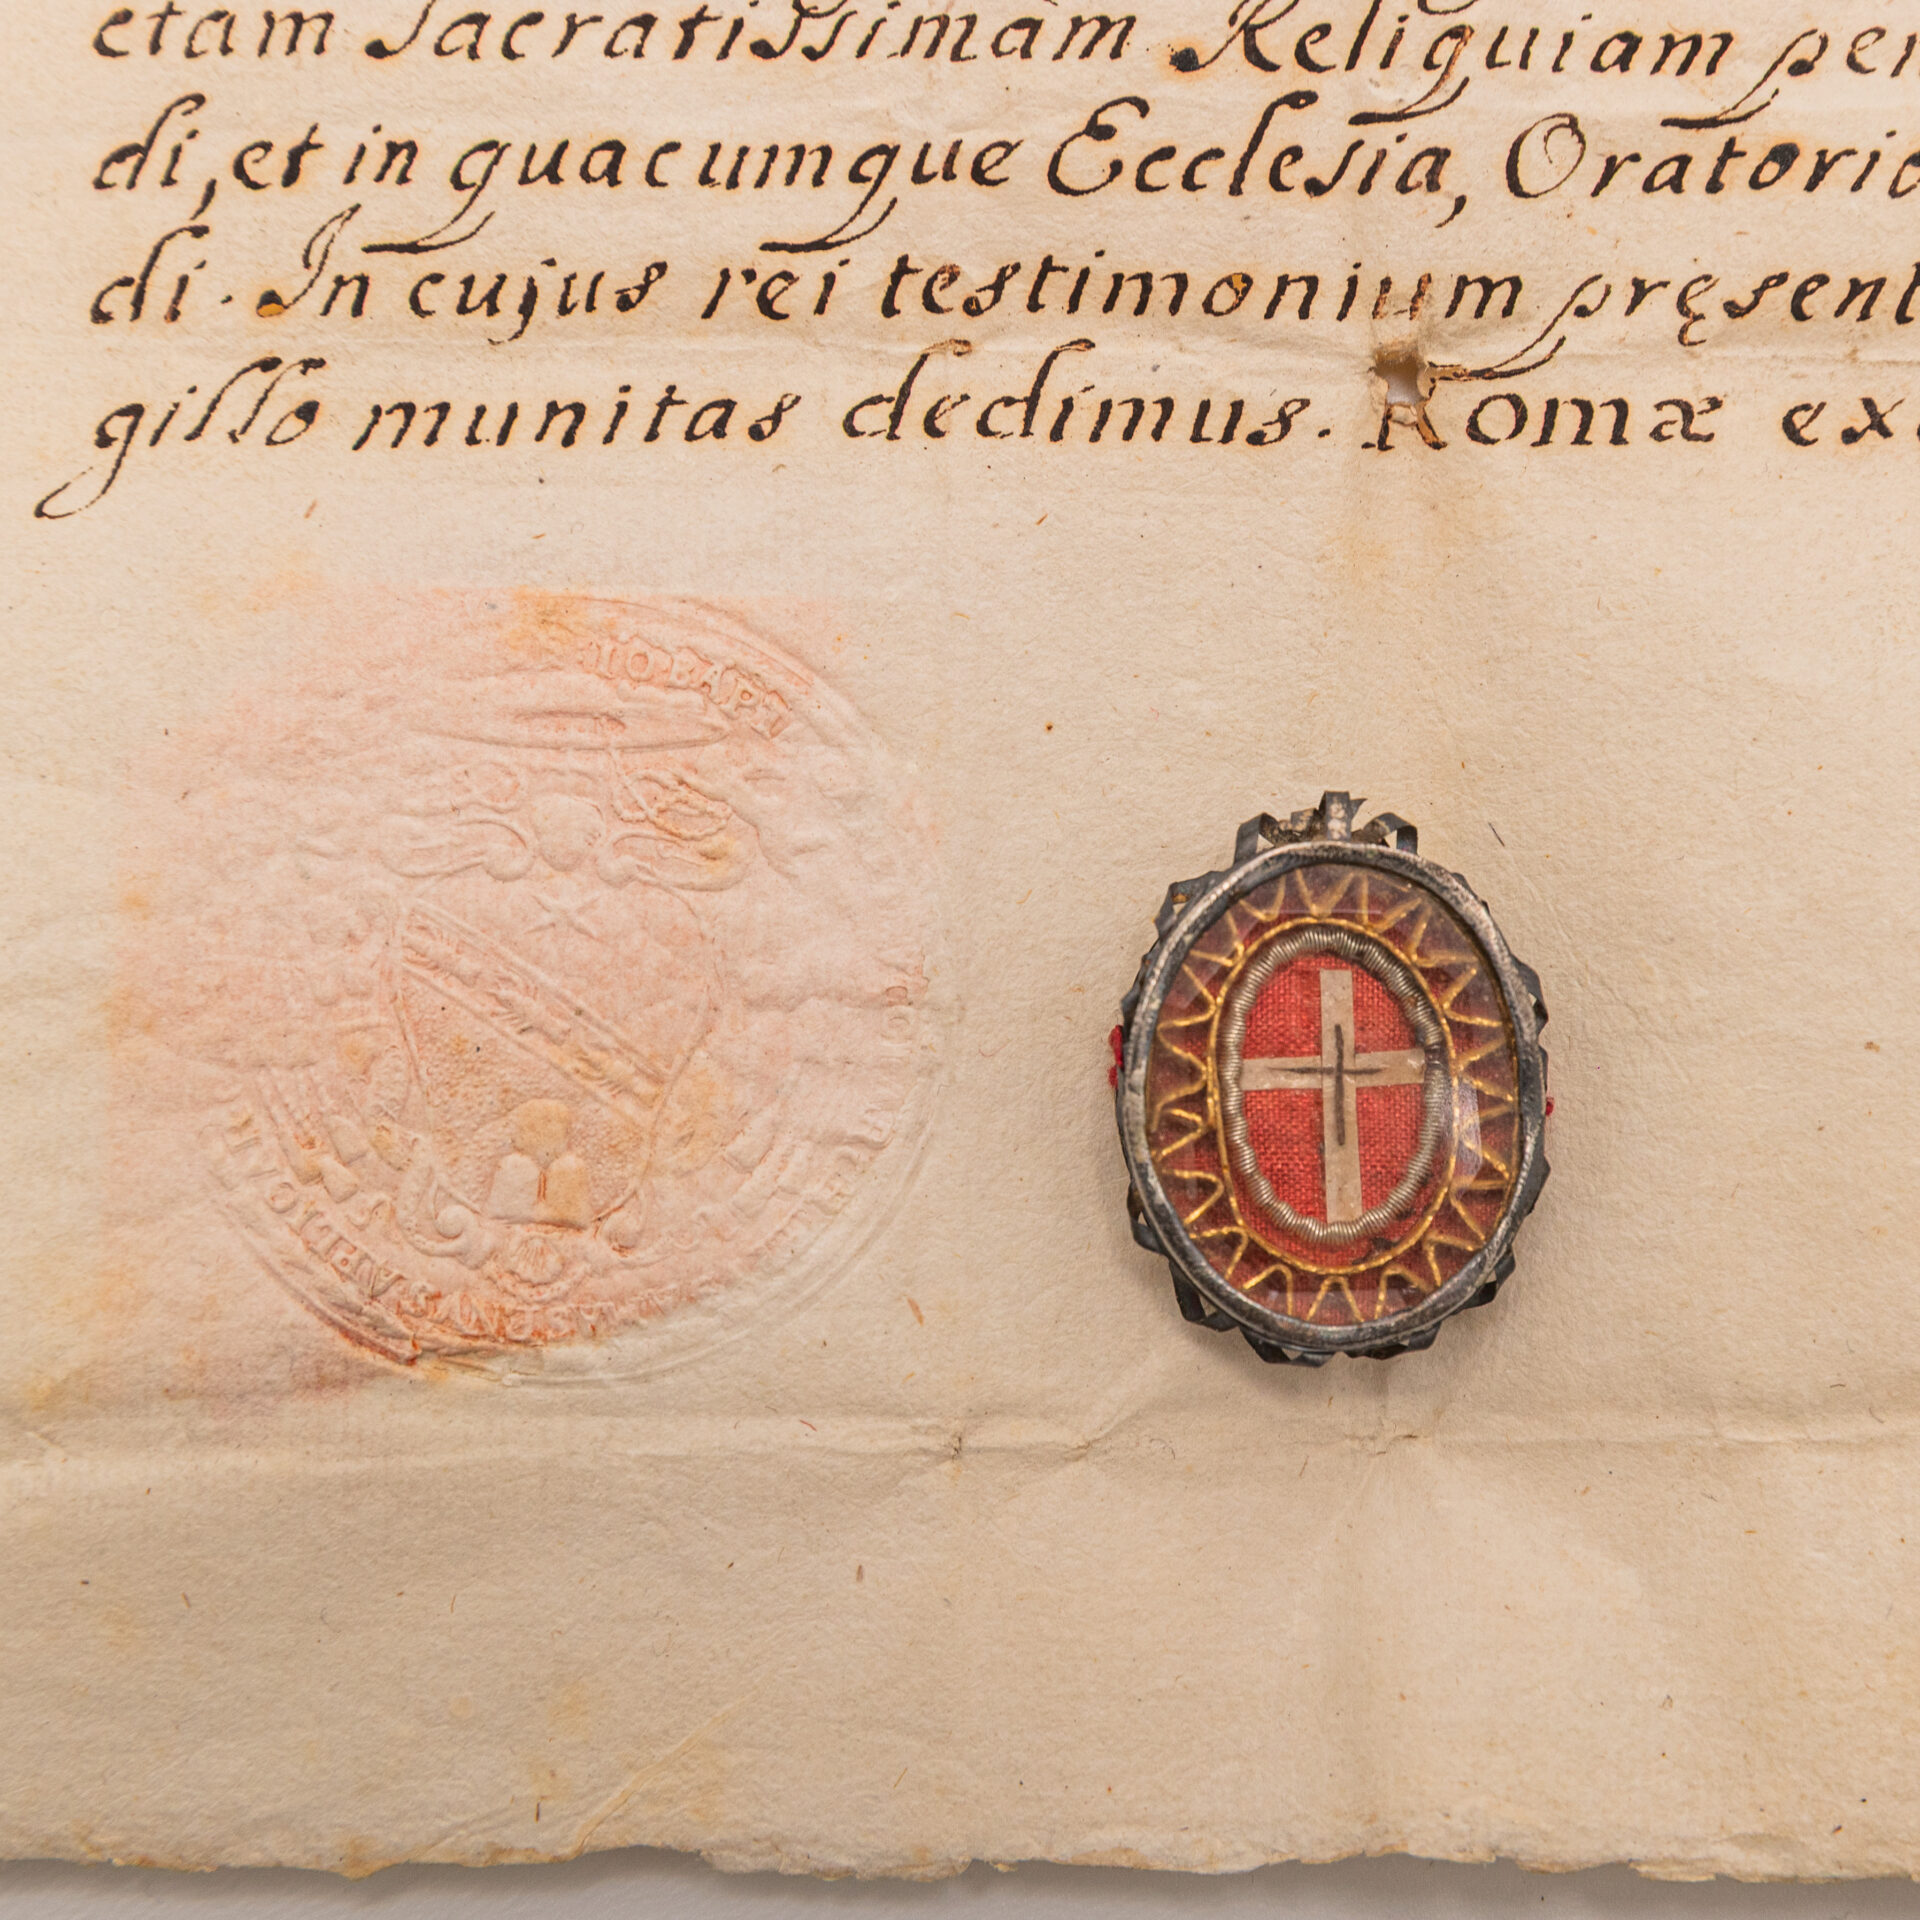 etam Sacratissimam Reliquiam pe
di, et in quacumque Ecclesia, Oratorio
di. In cujus rei testimonium pręsent
gillo munitas dedimus. Romæ ex
IO BAPT